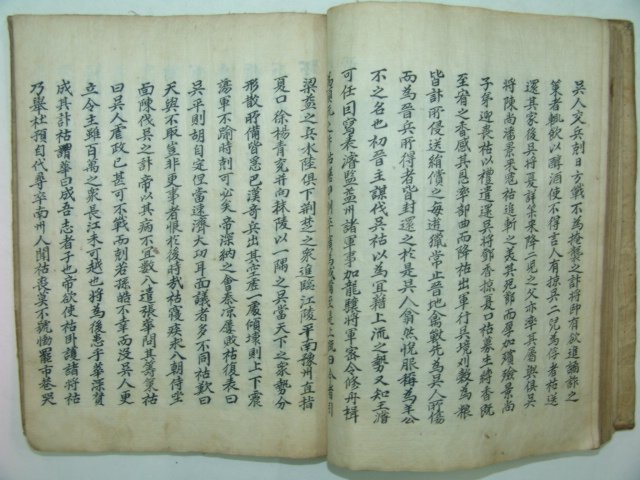 吳人交兵刻日方戰不爲掩襲之計將帥有欲進譎詐之
策者輒飲以醇酒使不得言人有掠吳二兒爲俘者祜送
還其家後吳將夏詳等來降二兒之父亦率其屬與俱吳
將陳尚潘景來寇祜追斬之美其死節而厚加殯斂景尚
子弟迎喪祜以禮遣還吳將鄧香掠夏口祜募生縛香旣
至宥之香感其恩率部曲而降祜出軍行吳境刈穀爲粮
皆計所侵送絹償之每遊獵常止晉地禽獸先爲吳人所傷
而爲晉兵所得者皆封還之於是吳人翕然悅服稱爲羊公
不之名也初晉主謀伐吳祜以爲宜藉上流之勢又知王濬
可任因
表濬監益州諸軍事加龍驤將軍密令修舟楫
梁益之兵水陸俱下荊楚之衆進臨江陵平南豫州直指
夏口徐楊靑兗幷向秣陵以一隅之吳當天下之衆勢分
形散所備皆急巴漢奇兵出其空虛一處傾壞則上下震
蕩軍不踰時剋可必矣帝深納之會秦凉屢敗祜復表曰
吳平則胡自定但當速濟大功耳而議者多不同祜歎曰
天與不取豈非更事者恨於後時哉祜寢疾求入朝侍坐
面陳伐吳之計帝以其病不宜數入遣張華問其籌策祜
曰吳人虐政已甚可不戰而剋若孫皓不幸而沒吳人更
立令主雖百萬之衆長江未可越也將爲後患乎華深贊
成其計祜謂華曰成吾志者子也帝欲使祜臥護諸將祜
乃擧杜預自代尋卒南州人聞祜喪莫不號慟罷市巷哭